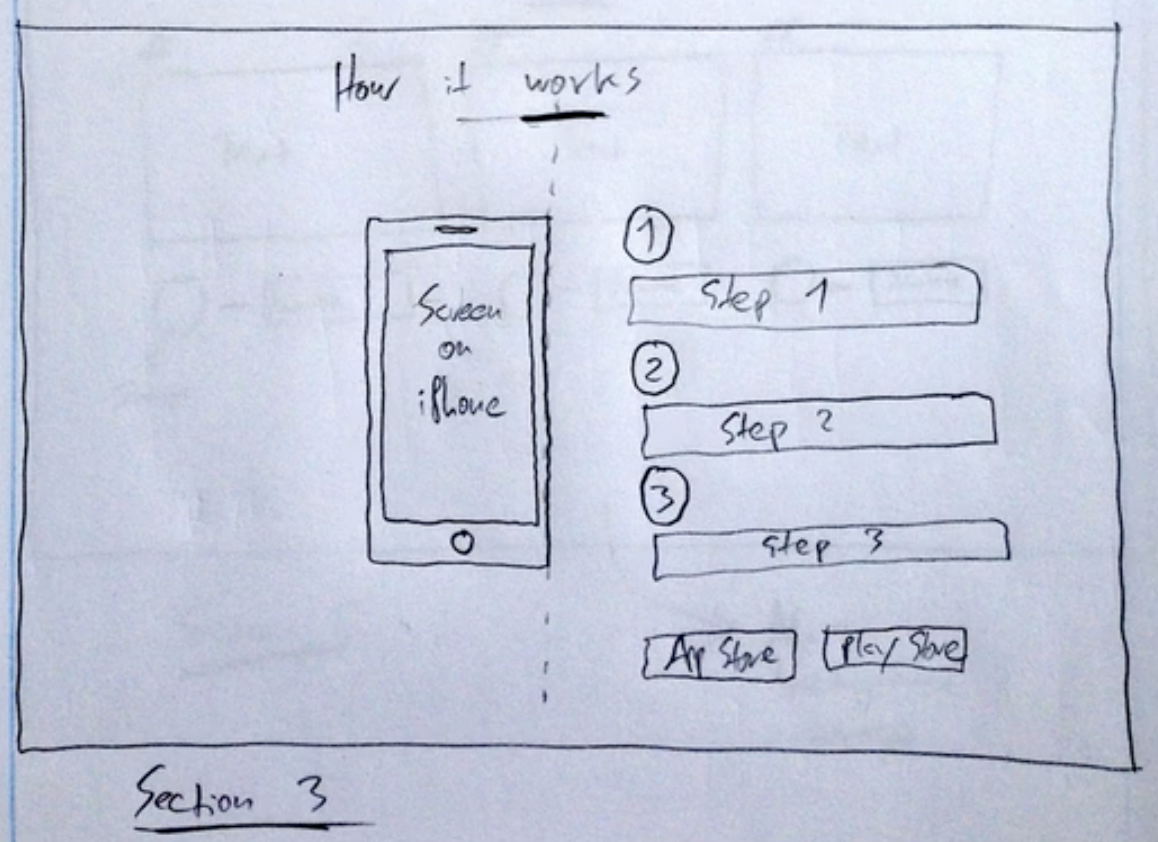 How it works
Screen
on
iPhone
1
Step 1
2
Step 2
3
Step 3
App Store
Play Store
Section 3